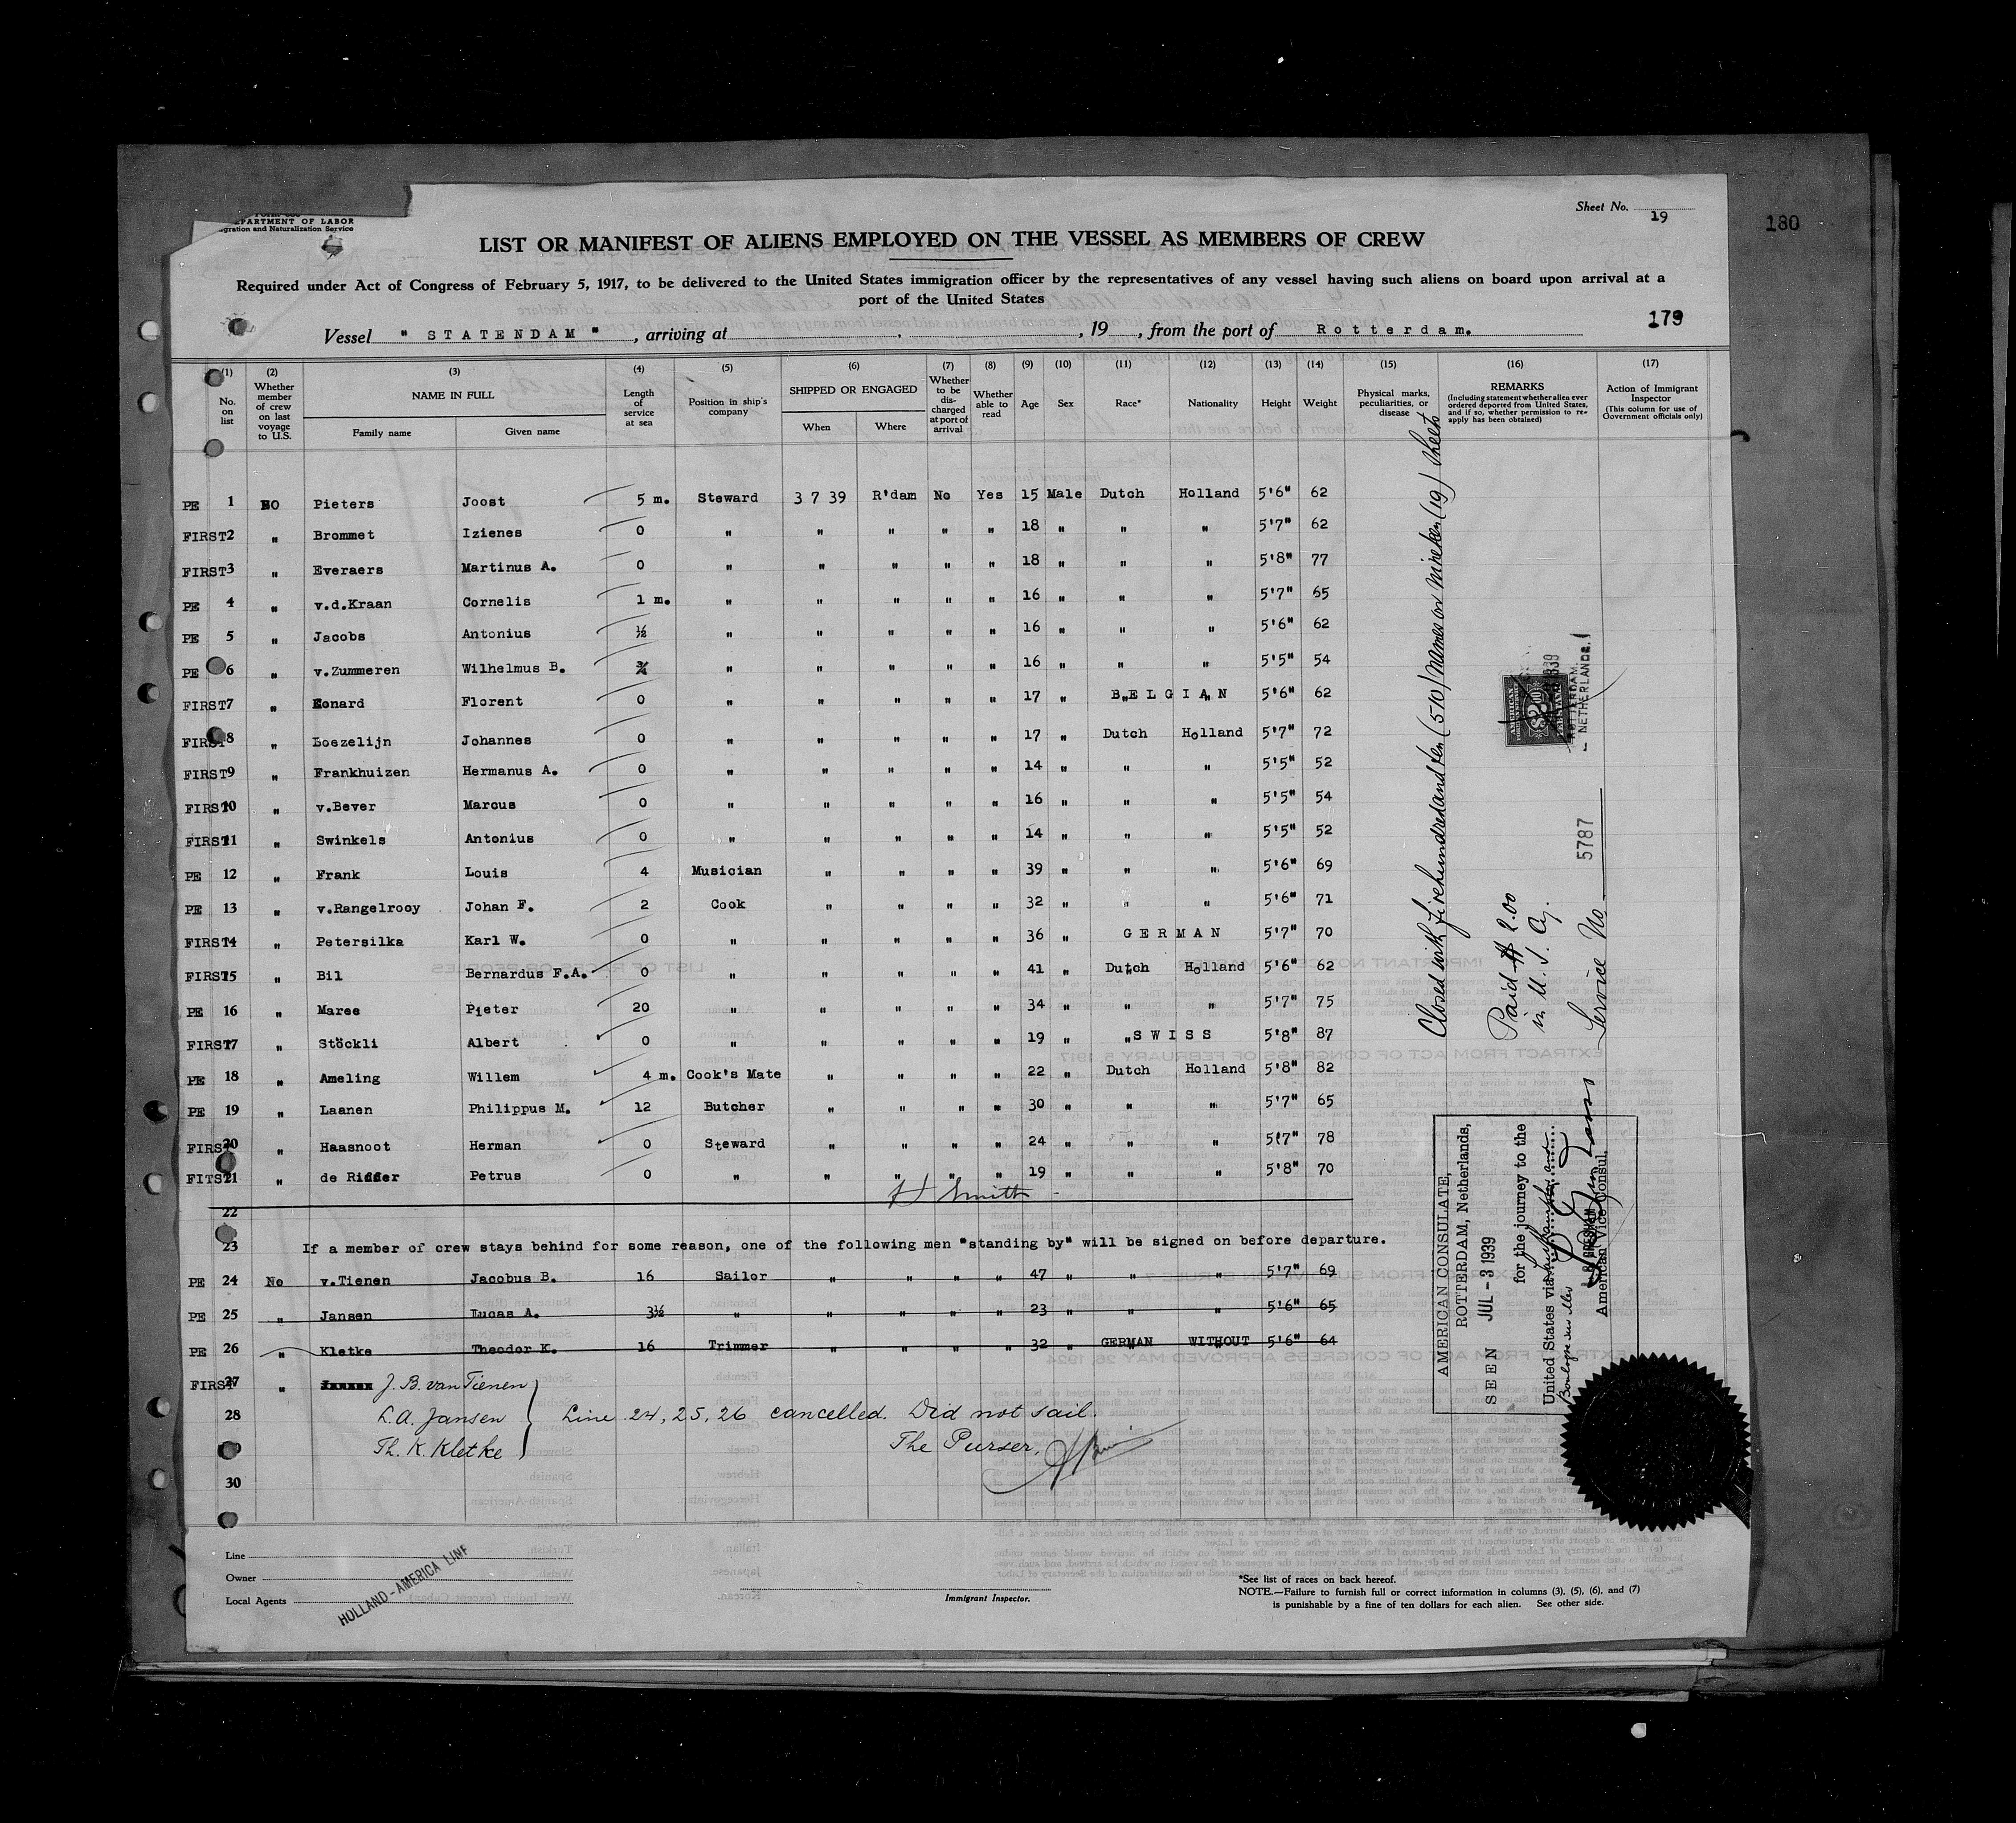 Sheet No. 19
180
Form 680
DEPARTMENT OF LABOR
Immigration and Naturalization Service
LIST OR MANIFEST OF ALIENS EMPLOYED ON THE VESSEL AS MEMBERS OF CREW
Required under Act of Congress of February 5, 1917, to be delivered to the United States immigration officer by the representatives of any vessel having such aliens on board upon arrival at a
port of the United States
179
Vessel " STATENDAM ", arriving at , , 19 , from the port of Rotterdam.
(1) No. on list (2) Whether member of crew on last voyage to U.S. (3) NAME IN FULL Family name Given name (4) Length of service at sea (5) Position in ship's company (6) SHIPPED OR ENGAGED When Where (7) Whether to be discharged at port of arrival (8) Whether able to read (9) Age (10) Sex (11) Race* (12) Nationality (13) Height (14) Weight (15) Physical marks, peculiarities, or disease (16) REMARKS (Including statement whether alien ever ordered deported from United States, and if so, whether permission to re-apply has been obtained) (17) Action of Immigrant Inspector (This column for use of Government officials only)
PE 1 NO Pieters Joost 5 m. Steward 3 7 39 R'dam No Yes 15 Male Dutch Holland 5'6" 62
FIRST 2 " Brommet Izienes 0 " " " " " 18 " " " 5'7" 62
FIRST 3 " Everaers Martinus A. 0 " " " " " 18 " " " 5'8" 77
PE 4 " v.d.Kraan Cornelis 1 m. " " " " " 16 " " " 5'7" 65
PE 5 " Jacobs Antonius ½ " " " " " 16 " " " 5'6" 62
PE 6 " v.Zummeren Wilhelmus B. ¾ " " " " " 16 " " " 5'5" 54
FIRST 7 " Eonard Florent 0 " " " " " 17 " BELGIAN 5'6" 62
FIRST 8 " Loezelijn Johannes 0 " " " " " 17 " Dutch Holland 5'7" 72
FIRST 9 " Frankhuizen Hermanus A. 0 " " " " " 14 " " " 5'5" 52
FIRST 10 " v.Bever Marcus 0 " " " " " 16 " " " 5'5" 54
FIRST 11 " Swinkels Antonius 0 " " " " " 14 " " " 5'5" 52
PE 12 " Frank Louis 4 Musician " " " " 39 " " " 5'6" 69
PE 13 " v.Rangelrooy Johan F. 2 Cook " " " " 32 " " " 5'6" 71
FIRST 14 " Petersilka Karl W. 0 " " " " " 36 " GERMAN 5'7" 70
FIRST 15 " Bil Bernardus F.A. 0 " " " " " 41 " Dutch Holland 5'6" 62
PE 16 " Maree Pieter 20 " " " " " 34 " " " 5'7" 75
FIRST 17 " Stöckli Albert 0 " " " " " 19 " SWISS 5'8" 87
PE 18 " Ameling Willem 4 m. Cook's Mate " " " " 22 " Dutch Holland 5'8" 82
PE 19 " Laanen Philippus M. 12 Butcher " " " " 30 " " " 5'7" 65
FIRST 20 " Haasnoot Herman 0 Steward " " " " 24 " " " 5'7" 78
FITST 21 " de Ridder Petrus 0 " " " " " 19 " " " 5'8" 70
Smith
22
23 If a member of crew stays behind for some reason, one of the following men "standing by" will be signed on before departure.
PE 24 No v.Tienen Jacobus B. 16 Sailor " " " " 47 " " " 5'7" 69
PE 25 " Jansen Lucas A. 3½ " " " " " 23 " " " 5'6" 65
PE 26 " Kletke Theodor K. 16 Trimmer " " " " 32 " GERMAN WITHOUT 5'6" 64
FIRST 27 " J. B. van Tienen
28 L. A. Jansen Line 24, 25, 26 cancelled. Did not sail.
Th. K. Kletke The Purser,
30
Closed with fivehundredandten (510) names on nineteen (19) sheets
Paid $ 2.00
in U. S. Cy.
Service No 5787
ROTTERDAM,
NETHERLANDS.
AMERICAN CONSULATE,
ROTTERDAM, Netherlands,
SEEN JUL - 3 1939
for the journey to the
United States via
American Vice Consul.
Line
Owner
Local Agents
HOLLAND-AMERICA LINE
Immigrant Inspector.
*See list of races on back hereof.
NOTE.—Failure to furnish full or correct information in columns (3), (5), (6), and (7)
is punishable by a fine of ten dollars for each alien. See other side.